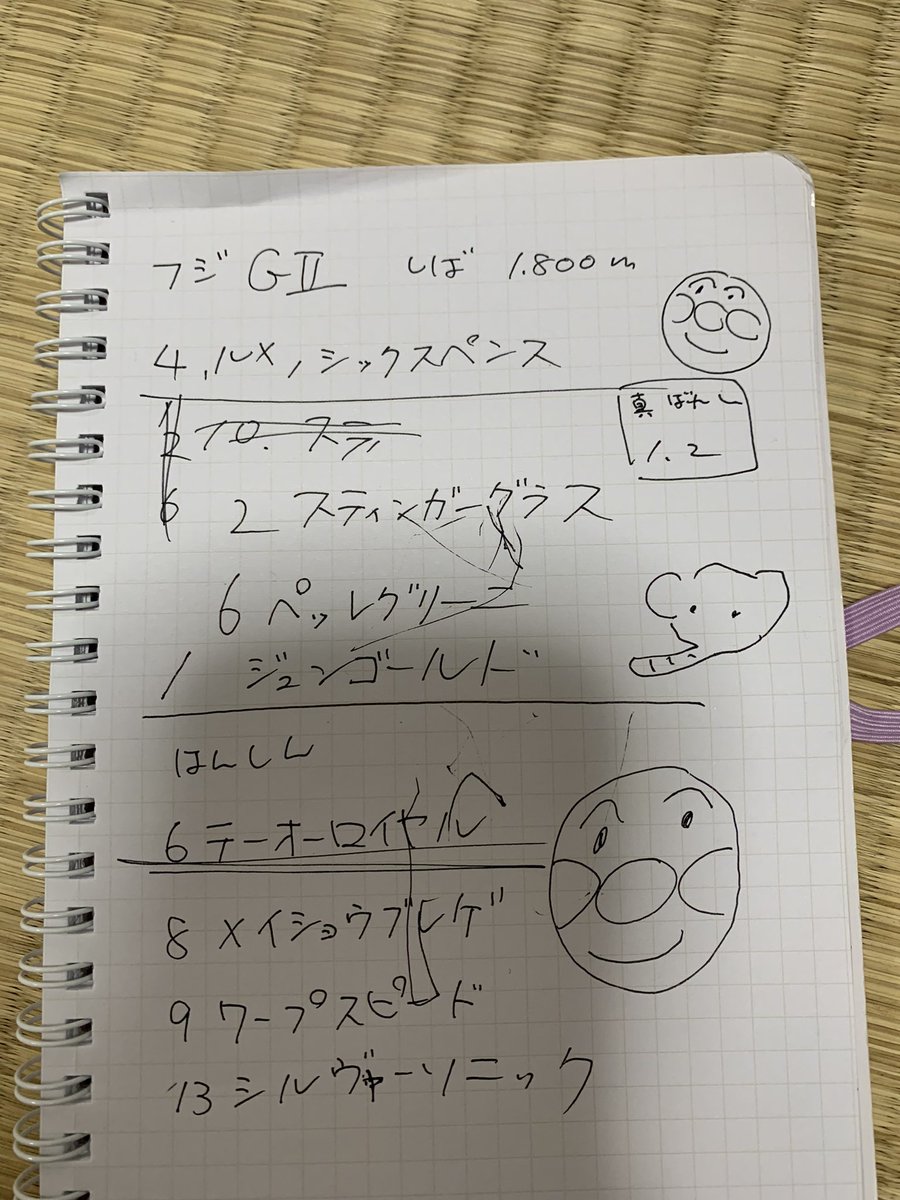 フジ GⅡ しば 1.800m
4.ルメ,シックスペンス
真 ばんし
1.2
10.ステ
6 2 スティンガーグラス
6 ペッレグリーニ
1 ジュンゴールド
はんしん
6 テーオーロイヤル
8 メイショウブレゲ
9 ワープスピード
13 シルヴァーソニック